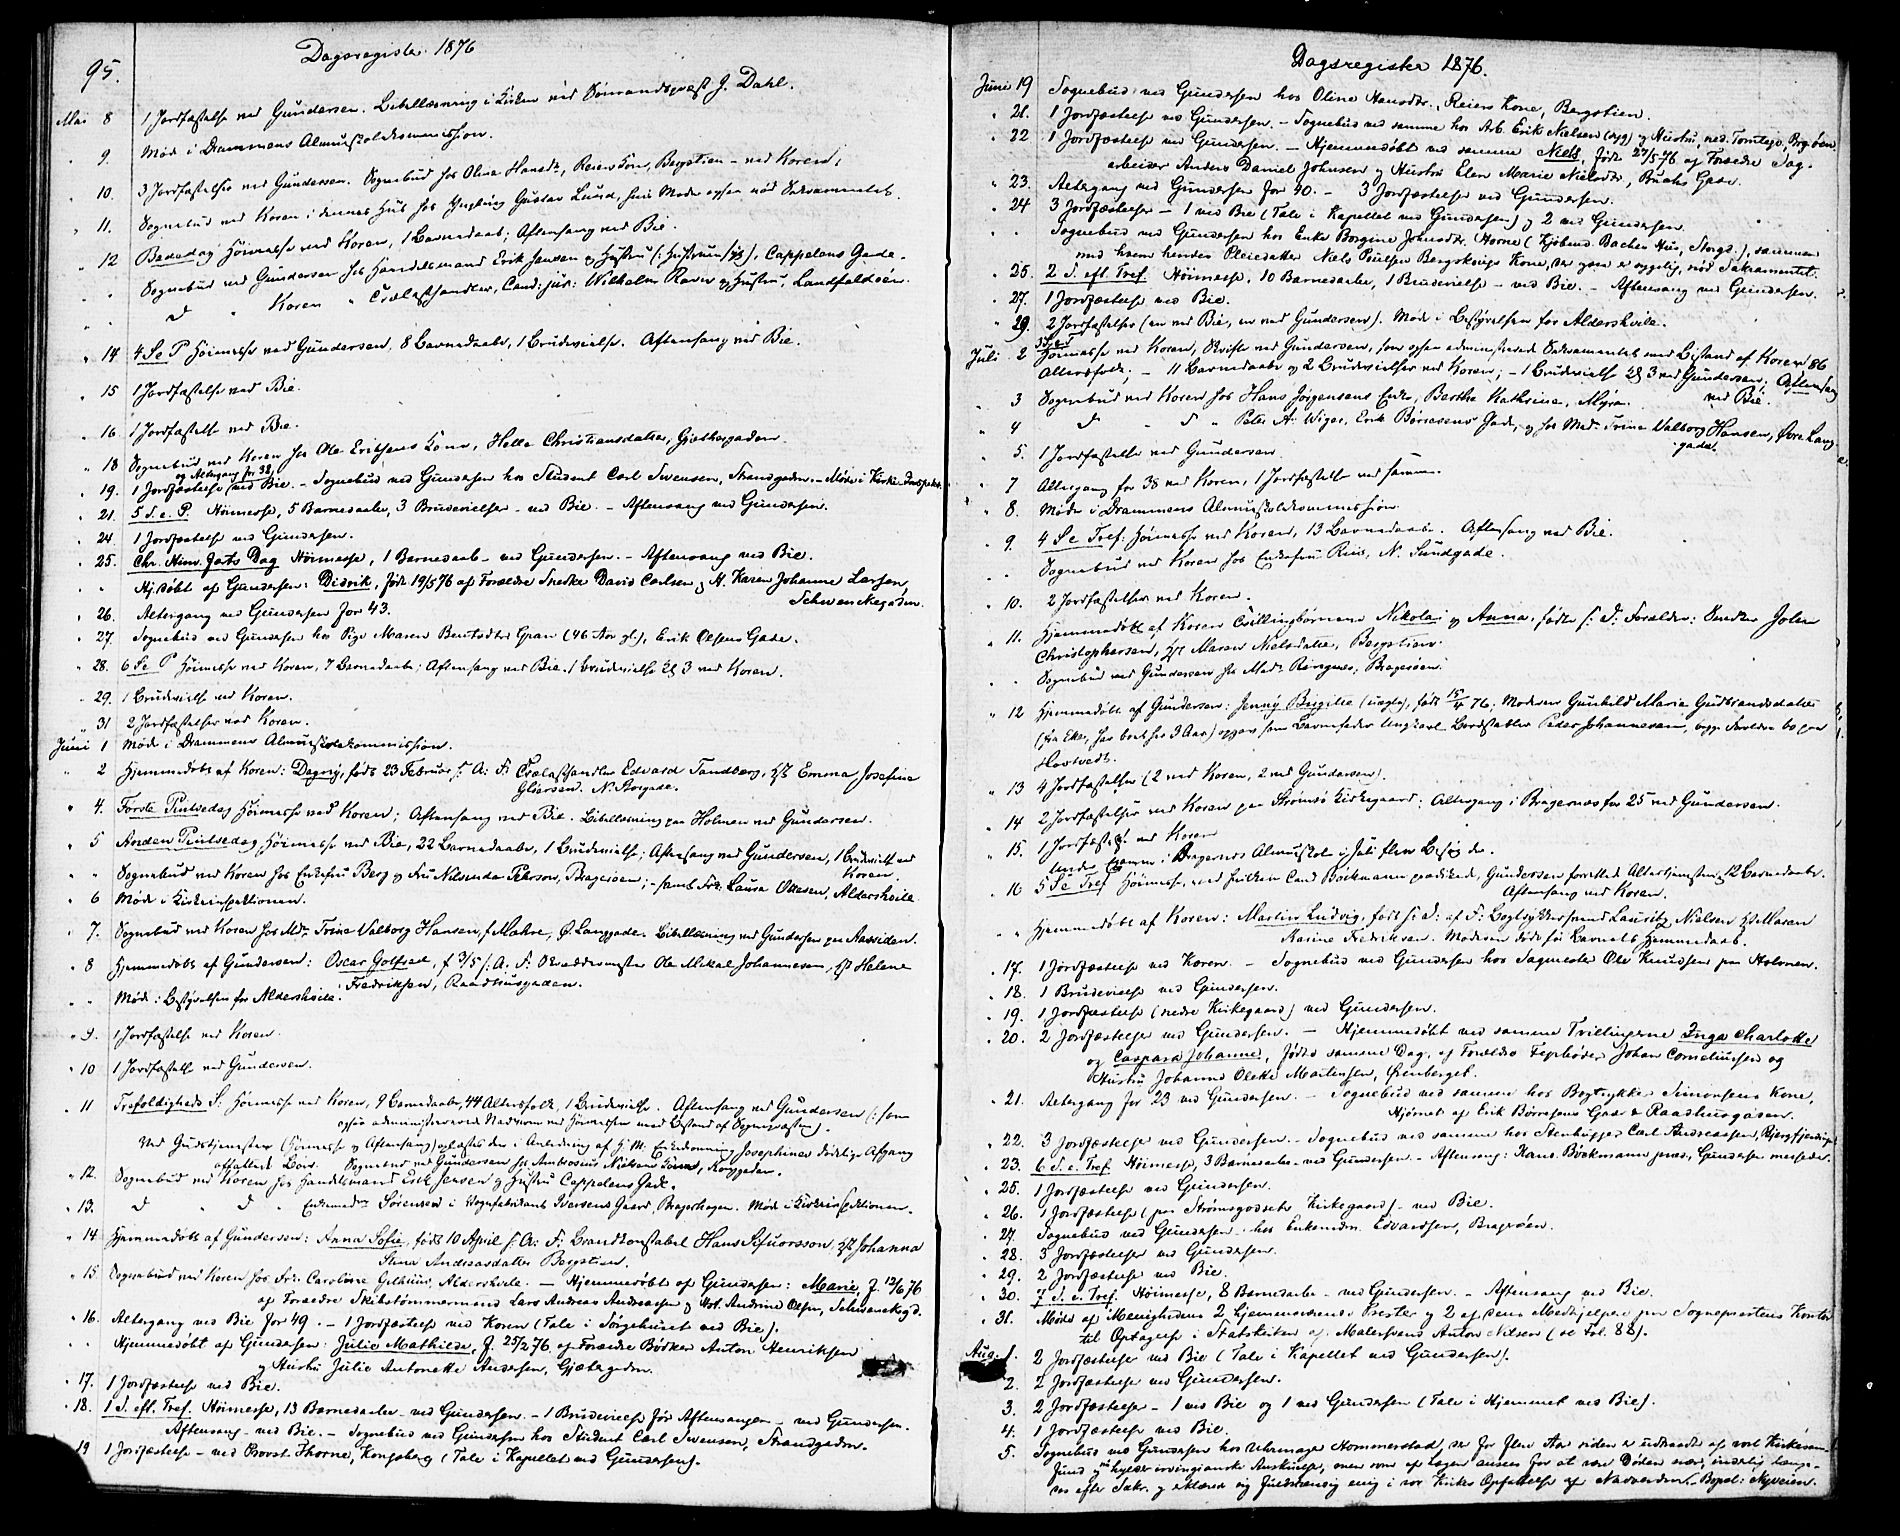 Dagsregister 1876
95.
Mai 8 1 Jordfæstelse ved Gundersen. Bibellæsning i Kirken ved Sømandspræst J. Dahl.
" 9. Møde i Drammens Almueskolekommission.
" 10. 3 Jordfæstelser ved Gundersen. Sognebud hos Oline Hansdtr., Reiers Kone, Bergstien - ved Koren.
" 11. Sognebud ved Koren i dennes Hus hos Yngling Gustav Lund, hvis Moder ogsaa nød Sakramentet.
" 12 Bededag Høimesse ved Koren, 1 Barnedaab; Aftensang ved Bie.
" " Sognebud ved Gundersen hos Handelsmand Erik Jensen og Hustru (: Hustruen syg), Cappelens Gade.
" " d " Koren " Trælasthandler, Cand: jur: Wilhelm og Hustru, Landfaldøen.
" 14 4 Se P Høimesse ved Gundersen, 8 Barnedaabe, 1 Brudevielse. Aftensang ved Bie.
" 15 1 Jordfæstelse ved Bie.
" 16 1 Jordfæstelse ved Bie.
" 18 Sognebud ved Koren hos Ole Eriksens Kone, Helle Christiansdatter, Gjætergaden.
og Altergang for 32,
" 19. 1 Jordfæstelse ved Bie. - Sognebud ved Gundersen hos Student Carl Svensen, Strandgaden. - Møde i Kirke-Inspekt.
" 21. 5 S. e. P. Høimesse, 5 Barnedaabe, 3 Brudevielser - ved Bie. - Aftensang ved Gundersen.
" 24 1 Jordfæstelse ved Gundersen.
" 25. Chr. Him. farts Dag Høimesse, 1 Barnedaab - ved Gundersen. - Aftensang ved Bie.
" " Hj. døbt af Gundersen: Didrik, født 19/5 76 af Forældre Snedker David Carlsen og H. Karen Johanne Larsen,
Schwenckegaden.
" 26. Altergang ved Gundersen for 43.
" 27. Sognebud ved Gundersen hos Pige Maren Berntsdtr Gran (46 Aar gl.), Erik Olsens Gade.
" 28. 6 Se P Høimesse ved Koren, 7 Barnedaabe; Aftensang ved Bie. 1 Brudevielse Kl 3 ved Koren.
" 29. 1 Brudevielse ved Koren.
" 31 2 Jordfæstelser ved Koren.
Juni 1 Møde i Drammens Almueskolekommission.
" 2 Hjemmedøbt af Koren: Dagny, født 23 Februar s: A: F: Trælasthandler Edvard Tandberg, Hst Emma Josefine
N. Storgade.
" 4. Første Pintsedag Høimesse ved Koren; Aftensang ved Bie. Bibellæsning paa Holmen ved Gundersen.
" 5 Anden Pintsedag, Høimesse ved Bie, 22 Barnedaabe, 1 Brudevielse; Aftensang ved Gundersen, 1 Brudevielse ved
Koren.
" " Sognebud ved Koren hos Enkefru Berg og Fru Nilsenda Peterson, Bragerøen; - samt Frk. Laura Ottesen, Aldershvile
" 6 Møde i Kirkeinspektionen.
" 7. Sognebud ved Koren hos Md. Trine Valborg Hansen, f Mahre, Ø. Langgade. Bibellæsning ved Gundersen paa Aassiden.
" 8 Hjemmedøbt af Gundersen: Oscar Gotfred, f 3/5 s: A. F: Skræddermester Ole Mikal Johannesen, Hst Helene
Fredriksen, Raadhusgaden.
" " Møde i Bestyrelsen for Aldershvile.
" 9. 1 Jordfæstelse ved Koren.
" 10 1 Jordfæstelse ved Gundersen.
" 11 Trefoldigheds S: Høimesse ved Koren, 9 Barnedaabe, 44 Altersfolk, 1 Brudevielse. Aftensang ved Gundersen (: som
ogsaa administrerede Nadveren ved Høimessen med Bistand af Sognepræsten).
Ved Gudstjenesten (Høimesse og Aftensang) oplæstes den i Anledning af H. M. Enkedronning Josephines dødelige Afgang
affattede Bøn. Sognebud ved Gundersen hos Ambrosius Nielsens Kone,
" 12. Sognebud ved Koren hos Handelsmand Erik Jensen og Hustru Cappelens Gade.
" 13. d " d " Enkemad. Sørensen i Vognfabrikant Iversens Gaard, Bragerhagen. Møde i Kirkeinspektionen.
" 14 Hjemmedøbt af Gundersen: Anna Sofie, født 10 April s: A: F: Brandkonstabel Hans Hst Johanna
Stina Andreasdatter Bergstien.
" 15. Sognebud ved Koren hos Frk. Caroline Aldershvile. - Hjemmedøbt af Gundersen: Marie, f. 12/6 76
af Forældre Skibstømmermand Lars Andreas Andreasen og Hst. Andrine Olsen, Schwenckesgd.
" 16. Altergang ved Bie for 49. - 1 Jordfæstelse ved Koren (Tale i Sørgehuset ved Bie).
" " Hjemmedøbt af Gundersen: Julie Mathilde, f. 25/2 76 af Forældre Bødker Anton Henriksen
og Hustru Julie Antonette Andersen, Gjætergaden.
" 17. 1 Jordfæstelse ved Bie.
" 18. 1 S. eft. Tref. Høimesse, 13 Barnedaabe - ved Gundersen. - 1 Brudevielse før Aftensangen - ved Gundersen.
Aftensang - ved Bie. - Sognebud ved Gundersen hos Student Carl Svensen, Strandgaden.
19 1 Jordfæstelse - ved Provst Thorne, Kongsberg (Tale i Kapellet ved Gundersen).
Dagsregister 1876.
Juni 19 Sognebud ved Gundersen hos Oline Hansdtr., Reiers Kone, Bergstien.
" 21. 1 Jordfæstelse ved Gundersen. - Sognebud ved samme hos Arb. Erik Nielsen (syg) og Hustru, ned. Tomtegd, Brgøen.
" 22 1 Jordfæstelse ved Gundersen. - Hjemmedøbt ved samme Niels, født 27/5 76 af Forældre Dag-
arbeider Anders Daniel Johnsen og Hustru Elen Marie Nielsdtr., Buchs Gade.
" 23. Altergang ved Gundersen for 90. - 3 Jordfæstelser ved Gundersen.
" 24 3 Jordfæstelser - 1 ved Bie (Tale i Kapellet ved Gundersen) og 2 ved Gundersen.
" " Sognebud ved Gundersen hos Enke Borgine Johnsdtr. Horne (Kjøbmd. Baches Hus, Storgd.), sammen
med hvem hendes Pleiedatter Niels Poulsen Bergskrigs Kone, der ogsaa er sygelig, nød Sakramentet.
" 25. 2 S. eft. Tref. Høimesse, 10 Barnedaabe, 1 Brudevielse - ved Bie. - Aftensang ved Gundersen.
" 27. 1 Jordfæstelse ved Bie.
" 29. 2 Jordfæstelser (en ved Bie, en ved Gundersen). Møde i Bestyrelsen for Aldershvile.
Juli 2 Høimesse ved Koren, Skrifte ved Gundersen, som ogsaa administrerede Sakramentet med Bistand af Koren 86
Altersfolk; - 11 Barnedaabe og 2 Brudevielser ved Koren; - 1 Brudevielse Kl 3 ved Gundersen; Aftensang
ved Bie.
" 3 Sognebud ved Koren hos Hans Jørgensens Enke, Berthe Kathrine, Myra.
" 4 d " d " Peter A. Wiger, Erik Børresens Gade, og hos Mad. Trine Valborg Hansen, Øvre Lang-
gade.
" 5. 1 Jordfæstelse ved Gundersen
" 7 Altergang for 38 ved Koren, 1 Jordfæstelse ved samme.
" 8. Møde i Drammens Almueskolekommission
" 9. 4 Se Tref: Høimesse ved Koren, 13 Barnedaabe. Aftensang ved Bie.
" " Sognebud ved Koren hos Enkefru N. Sundgade.
" 10. 2 Jordfæstelser ved Koren.
" 11. Hjemmedøbt af Koren Tvillingbørnene Nikolai og Anna, fødte s: D: Forældre: Snedker Johan
Christophersen, Hst Maren Nielsdatter, Bergstien.
" " Sognebud ved Gundersen hos Mad. Ringnes, Bragerøen.
" 12 Hjemmedøbt af Gundersen: Jenny Birgitte (uægte), født 15/4 76; Moderen Gunhild Marie Gudbrandsdatter
(fra Eker, har boet her 3 Aar) opgav som Barnefader Ungkarl Bordstabler Peder Johannesen, begge Forældre bo paa
Hovtvedt.
" 13 4 Jordfæstelser (2 ved Koren, 2 ved Gundersen).
" 14 2 Jordfæstelser ved Koren paa Strømsø Kirkegaard; Altergang i Bragernæs for 25 ved Gundersen.
" 15. 1 Jordfæst. ved Koren
under Examen i Bragernes Almueskole i Juli flere Besøg der.
" 16 5 Se Tref Høimesse, ved hvilken Cand Böckmann prædikede, Gundersen forrettede Altertjenesten, 12 Barnedaabe.
Aftensang ved Koren.
" " Hjemmedøbt af Koren: Martin Ludvig, født s: D: af F: Bogtrykkersvend Lauritz Nielsen Hst Maren
Karine Fredriksen. Moderen døde før Barnets Hjemmedaab.
" 17. 1 Jordfæstelse ved Koren. - Sognebud ved Gundersen hos Sagmester Ole Knudsen paa Holmen.
" 18. 1 Brudevielse ved Gundersen.
" 19. 1 Jordfæstelse (nedre Kirkegaard) ved Gundersen.
" 20. 2 Jordfæstelser ved Gundersen. - Hjemmedøbt ved samme Tvillingerne Inga Charlotte
og Caspara Johanne, fødte samme Dag, af Forældre Fejrbøder Johan Corneliussen og
Hustru Johanne Oleke Mortensen, Ørenberget.
" 21. Altergang for 23 ved Gundersen. - Sognebud ved samme hos Bogtrykker Simonsens Kone,
Hjørnet af Erik Børresens Gade & Raadhusgaden.
" 22. 3 Jordfæstelser ved Gundersen. - Sognebud ved samme hos Stenhugger Carl Andreassen, Bjergfjerdingen
" 23. 6 S. e. Tref. Høimesse, 3 Barnedaabe - ved Gundersen. - Aftensang: Kand. Böckmann præd., Gundersen messede.
" 25. 1 Jordfæstelse ved Gundersen.
" 26. 1 Jordfæstelse (paa Strømsgodsets Kirkegaard) - ved Bie.
" 27. Sognebud ved Gundersen hos Enkemdm. Edvardsen, Bragrøen.
" 28. 3 Jordfæstelser ved Gundersen.
" 29. 2 Jordfæstelser ved Bie.
" 30. 7 S. e. Tref. Høimesse, 8 Barnedaabe - ved Gundersen. - Aftensang ved Bie.
" 31. Møde af Menighedens 2 hjemmeværende Præster og 2 af dens Medhjelpere paa Sognepræstens Kontor
til Optagelse i Statskirken af Malersvend Anton Nilsen (se Fol. 88).
Aug. 1. 2 Jordfæstelser ved Bie (Tale i Kapellet ved Gundersen).
2. 2 Jordfæstelser ved Gundersen.
3. 2 Jordfæstelser - 1 ved Bie og 1 ved Gundersen (Tale i Hjemmet ved Bie).
4. 1 Jordfæstelse ved Bie.
5. Sognebud ved Gundersen hos Uhrmager Hommerstad, der for flere Aar siden er udtraadt af vort Kirkesam-
fund og nu hylder irvingianske Anskuelser, men som af Lægen ansees for at være Døden nær, inderlig længe-
des efter Sakr. og erklærede sig fuldstændig enig i vor Kirkes Opfattelse af Nadveren. Bopæl: Nyveien.